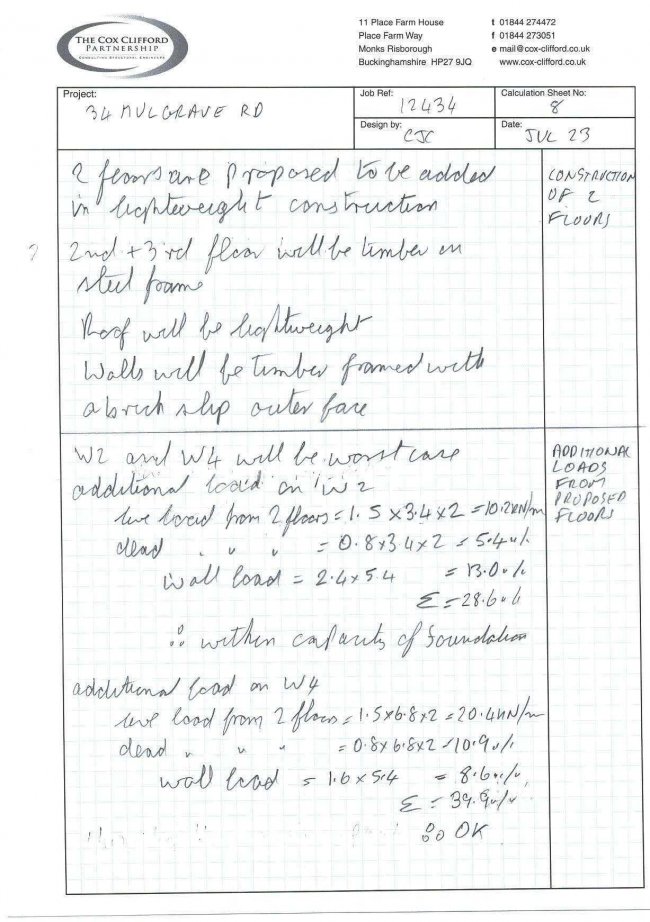 THE COX CLIFFORD
PARTNERSHIP
CONSULTING STRUCTURAL ENGINEERS
11 Place Farm House
Place Farm Way
Monks Risborough
Buckinghamshire HP27 9JQ
t 01844 274472
f 01844 273051
e mail@cox-clifford.co.uk
www.cox-clifford.co.uk
Project:
34 MULGRAVE RD
Job Ref:
12434
Calculation Sheet No:
8
Design by:
CJC
Date:
JUL 23
2 floors are proposed to be added
in lightweight construction
CONSTRUCTION
OF 2
FLOORS
?
2nd + 3rd floor will be timber on
steel frame
Roof will be lightweight
Walls will be timber framed with
a brick slip outer face
W2 and W4 will be worst case
additional load on W2
live load from 2 floors = 1.5 x 3.4 x 2 = 10.2 kN/m
dead " " " = 0.8 x 3.4 x 2 = 5.4 "/"
wall load = 2.4 x 5.4 = 13.0 "/"
Σ = 28.6 "/"
∴ within capacity of foundation
ADDITIONAL
LOADS
FROM
PROPOSED
FLOORS
additional load on W4
live load from 2 floors = 1.5 x 6.8 x 2 = 20.4 kN/m
dead " " " = 0.8 x 6.8 x 2 = 10.9 "/"
wall load = 1.6 x 5.4 = 8.6 "/"
Σ = 39.9 "/"
∴ OK